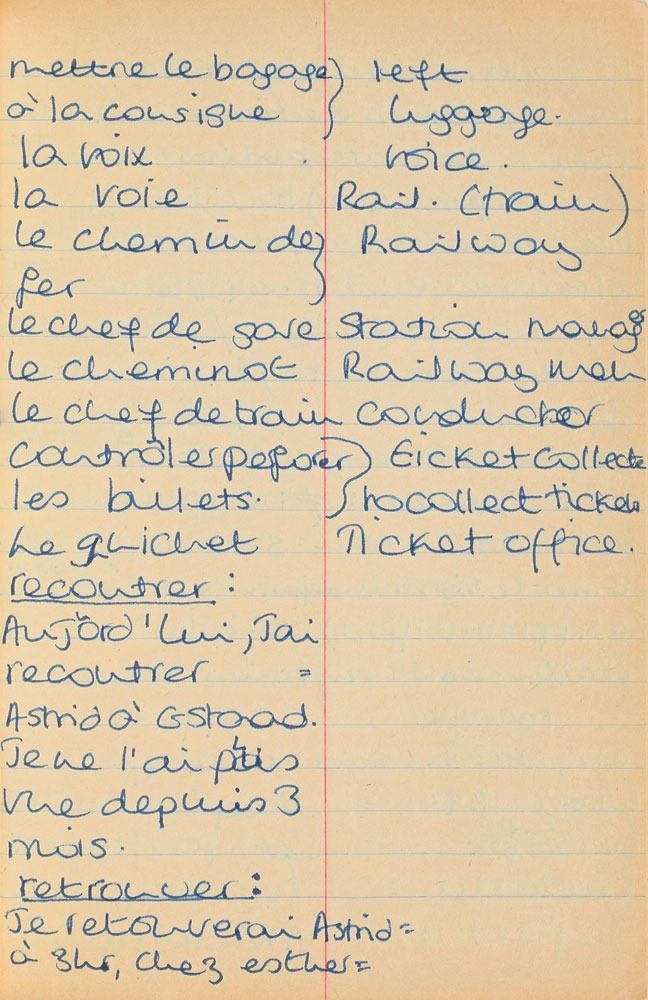 mettre le bagage } left
à la consigne } luggage.
la voix voice.
la voie Rail. (train)
le chemin de } Railway
fer }
le chef de gare Station manag
le cheminot Railway men
le chef de train conductor
contrôler } ticket collecte
les billets. } to collect tickets
Le guichet Ticket office.
recontrer :
Aujord'lui, J'ai
recontrer =
Astrid à Gstaad.
Je ne l'ai pas
vue depuis 3
mois.
retrouver :
Je retouverai Astrid =
à 3hr, chez esther =